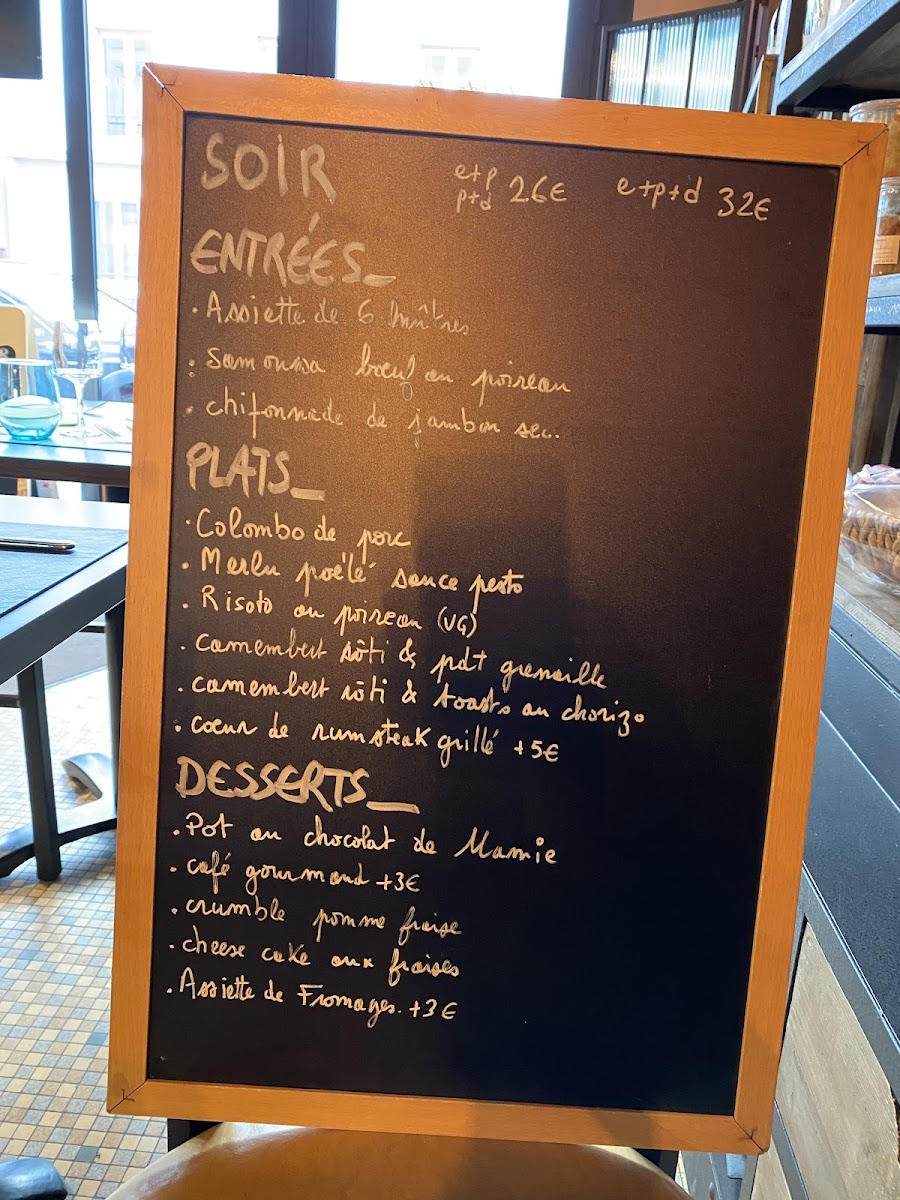 SOIR
e+p
p+d 26€ e+p+d 32€
ENTRÉES_
· Assiette de 6 huîtres
· Samoussa bœuf au poireau
· chifonnade de jambon sec.
PLATS_
· Colombo de porc
· Merlu poélé sauce pesto
· Risoto au poireau (VG)
· camembert rôti & pdt grenaille
· camembert rôti & toasts au chorizo
· cœur de rumsteak grillé +5€
DESSERTS_
· Pot au chocolat de Mamie
· café gourmand +3€
· crumble pomme fraise
· cheese cake aux fraises
· Assiette de Fromages. +3€